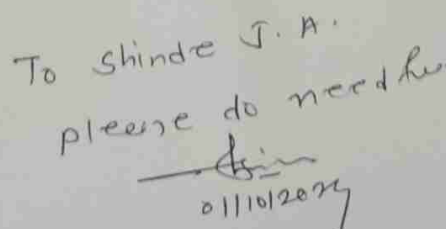 To Shinde J. A.
please do needfu
01/10/2024